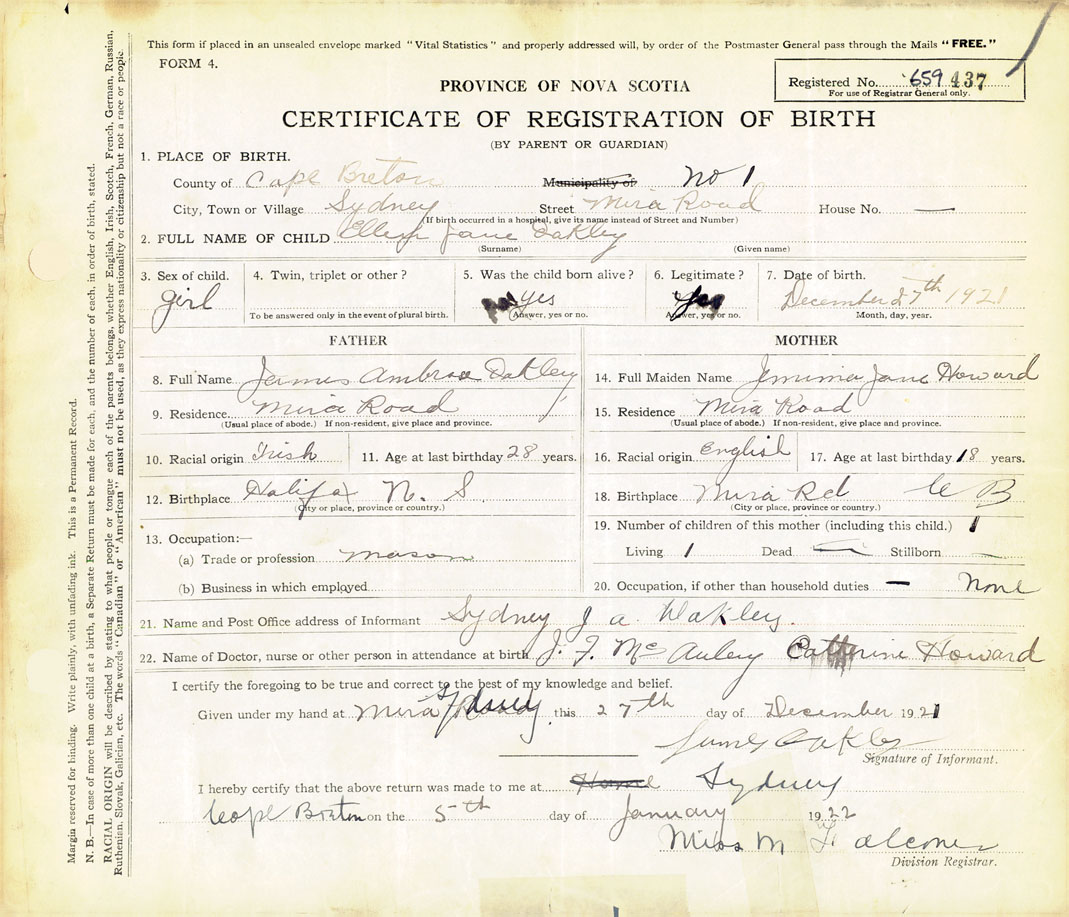 This form if placed in an unsealed envelope marked "Vital Statistics" and properly addressed will, by order of the Postmaster General pass through the Mails "FREE."
FORM 4.
Registered No. 659 437
For use of Registrar General only.
PROVINCE OF NOVA SCOTIA
CERTIFICATE OF REGISTRATION OF BIRTH
(BY PARENT OR GUARDIAN)
1. PLACE OF BIRTH.
County of Cape Breton Municipality of No 1
City, Town or Village Sydney Street Mira Road House No. —
(If birth occurred in a hospital, give its name instead of Street and Number)
2. FULL NAME OF CHILD Ellen Jane Oakley
(Surname) (Given name)
3. Sex of child. 4. Twin, triplet or other? 5. Was the child born alive? 6. Legitimate? 7. Date of birth.
girl yes Yes December 27th 1921
To be answered only in the event of plural birth. Answer, yes or no. Answer, yes or no. Month, day, year.
FATHER MOTHER
8. Full Name James Ambrose Oakley 14. Full Maiden Name Jemima Jane Howard
9. Residence Mira Road 15. Residence Mira Road
(Usual place of abode.) If non-resident, give place and province. (Usual place of abode.) If non-resident, give place and province.
10. Racial origin Irish 11. Age at last birthday 28 years. 16. Racial origin English 17. Age at last birthday 18 years.
12. Birthplace Halifax N. S. 18. Birthplace Mira Rd C B
(City or place, province or country.) (City or place, province or country.)
13. Occupation:— 19. Number of children of this mother (including this child.) 1
(a) Trade or profession mason Living 1 Dead — Stillborn —
(b) Business in which employed 20. Occupation, if other than household duties — None
21. Name and Post Office address of Informant Sydney J a Oakley.
22. Name of Doctor, nurse or other person in attendance at birth J. F. McAuley Catherine Howard
I certify the foregoing to be true and correct to the best of my knowledge and belief.
Given under my hand at Mira Road Sydney this 27th day of December 1921
James Oakley
Signature of Informant.
I hereby certify that the above return was made to me at Home Sydney
Cape Breton on the 5th day of January 1922
Miss M Falconer
Division Registrar.
Margin reserved for binding. Write plainly, with unfading ink. This is a Permanent Record.
N. B.—In case of more than one child at a birth, a Separate Return must be made for each, and the number of each, in order of birth, stated.
RACIAL ORIGIN will be described by stating to what people or tongue each of the parents belongs, whether English, Irish, Scotch, French, German, Russian,
Ruthenian, Slovak, Galician, etc. The words "Canadian" or "American" must not be used, as they express nationality or citizenship but not a race or people.